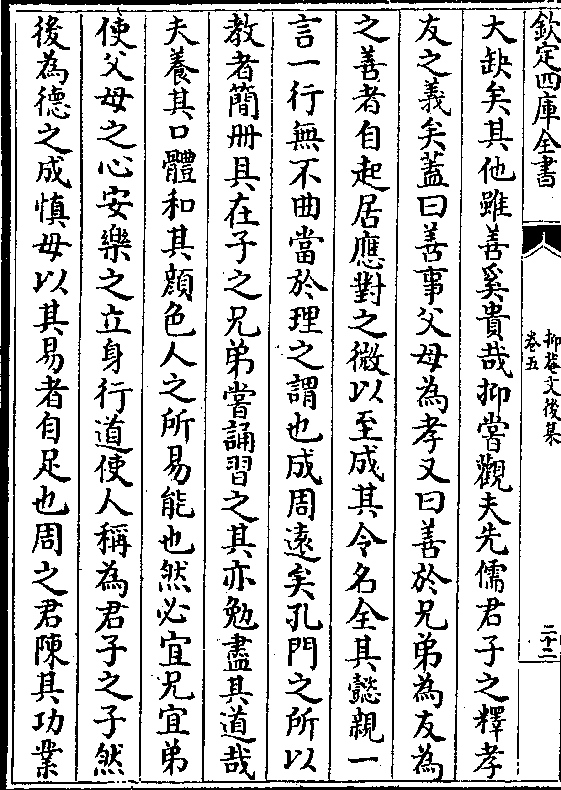 欽定四庫全書
抑菴文後集
卷五
二十二
大缺矣其他雖善奚貴哉抑嘗觀夫先儒君子之釋孝
友之義矣蓋曰善事父母為孝又曰善於兄弟為友為
之善者自起居應對之微以至成其令名全其懿親一
言一行無不曲當於理之謂也成周遠矣孔門之所以
教者簡冊具在子之兄弟嘗誦習之其亦勉盡其道哉
夫養其口體和其顔色人之所易能也然必宜兄宜弟
使父母之心安樂之立身行道使人稱為君子之子然
後為德之成慎毋以其易者自足也周之君陳其功業